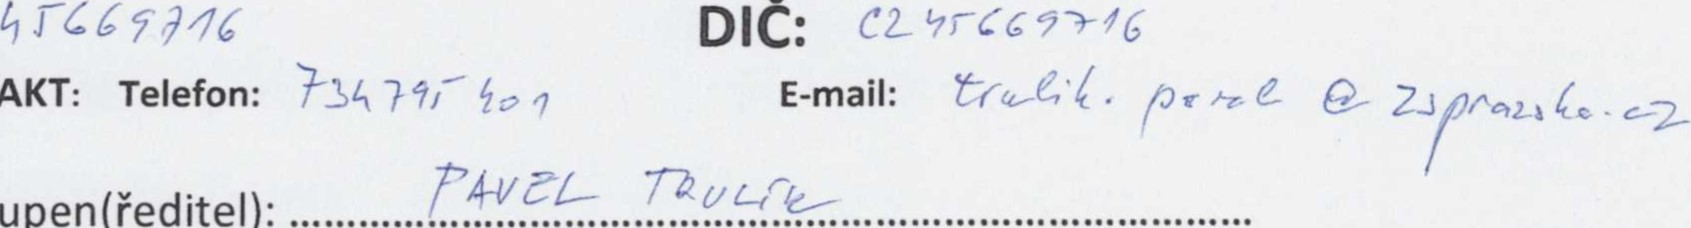 45669716 DIČ: CZ45669716
AKT: Telefon: 734 795 401 E-mail: trulik.pavel@zsprazska.cz
upen(ředitel): PAVEL TRULÍK